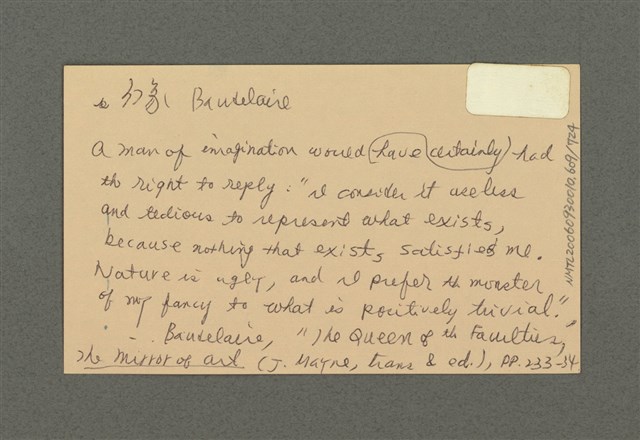 幻象 Baudelaire
A man of imagination would have certainly had
th right to reply: "I consider it useless
and tedious to represent what exists,
because nothing that exists satisfies me.
Nature is ugly, and I prefer th monster
of my fancy to what is positively trivial."
Baudelaire, "The Queen of th Faculties,"
The Mirror of Art (J. Mayne, trans & ed.), pp. 233-34
NMTL20060930010.609/724